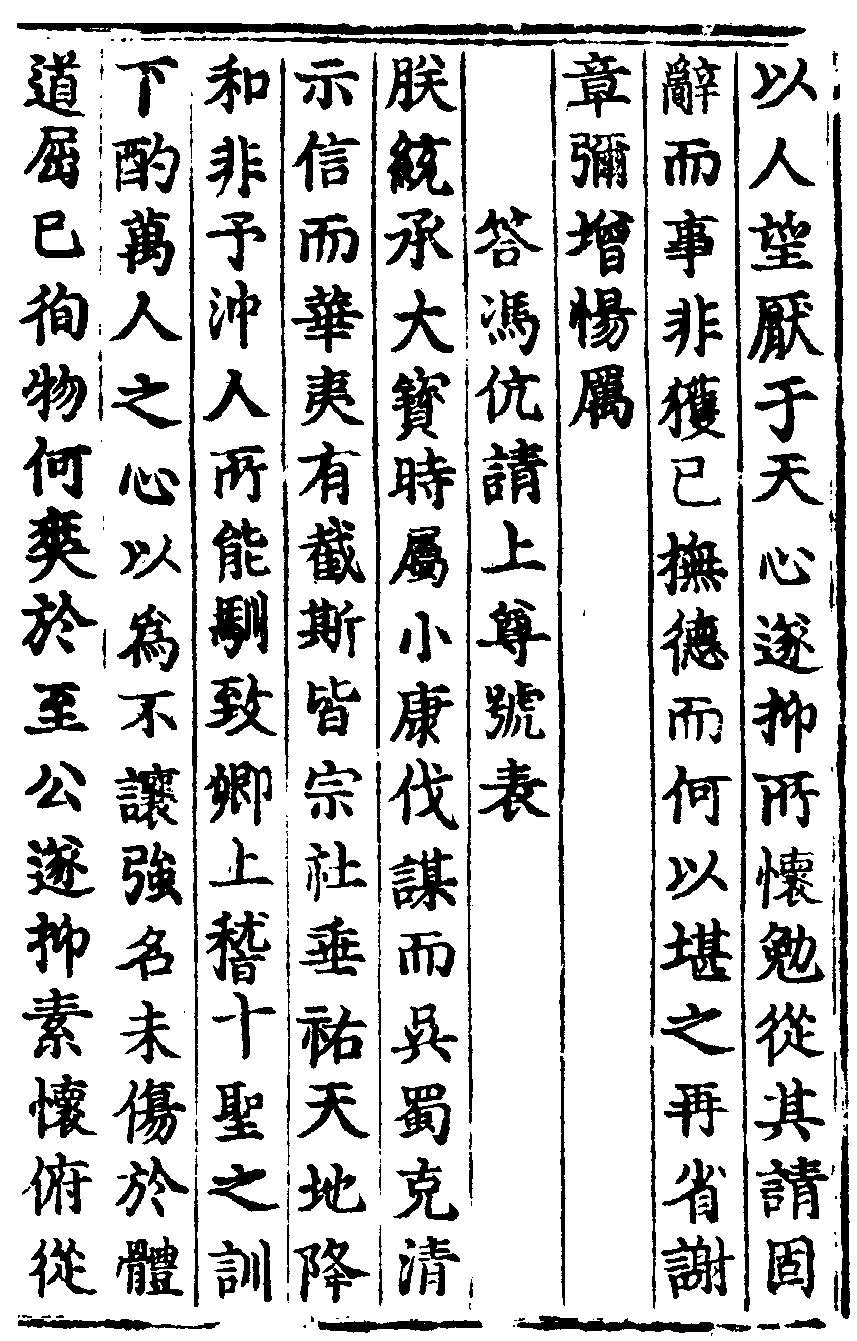 以人望厭于天心遂抑所懷勉從其請固
辭而事非獲已撫德而何以堪之再省謝
章彌增惕厲
答馮伉請上尊號表
朕統承大寶時屬小康伐謀而吳蜀克清
示信而華夷有截斯皆宗社垂祐天地降
和非予沖人所能馴致卿上稽十聖之訓
下酌萬人之心以為不讓強名未傷於體
道屈已徇物何爽於至公遂抑素懷俯從